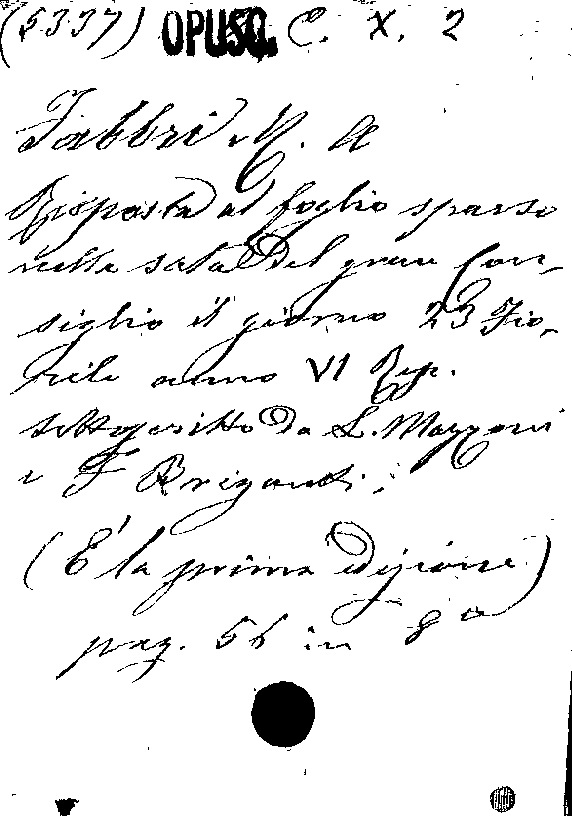 (5337) OPUSC. C. X. 2
Fabbri M. A
Risposta al foglio sparso
nella sala del gran Con-
siglio il giorno 23 Fio-
rile anno VI Rep.
sottoscritto da L. Mazzoni
e F Briganti;
(E' la prima edizione)
pag. 56 in 8°